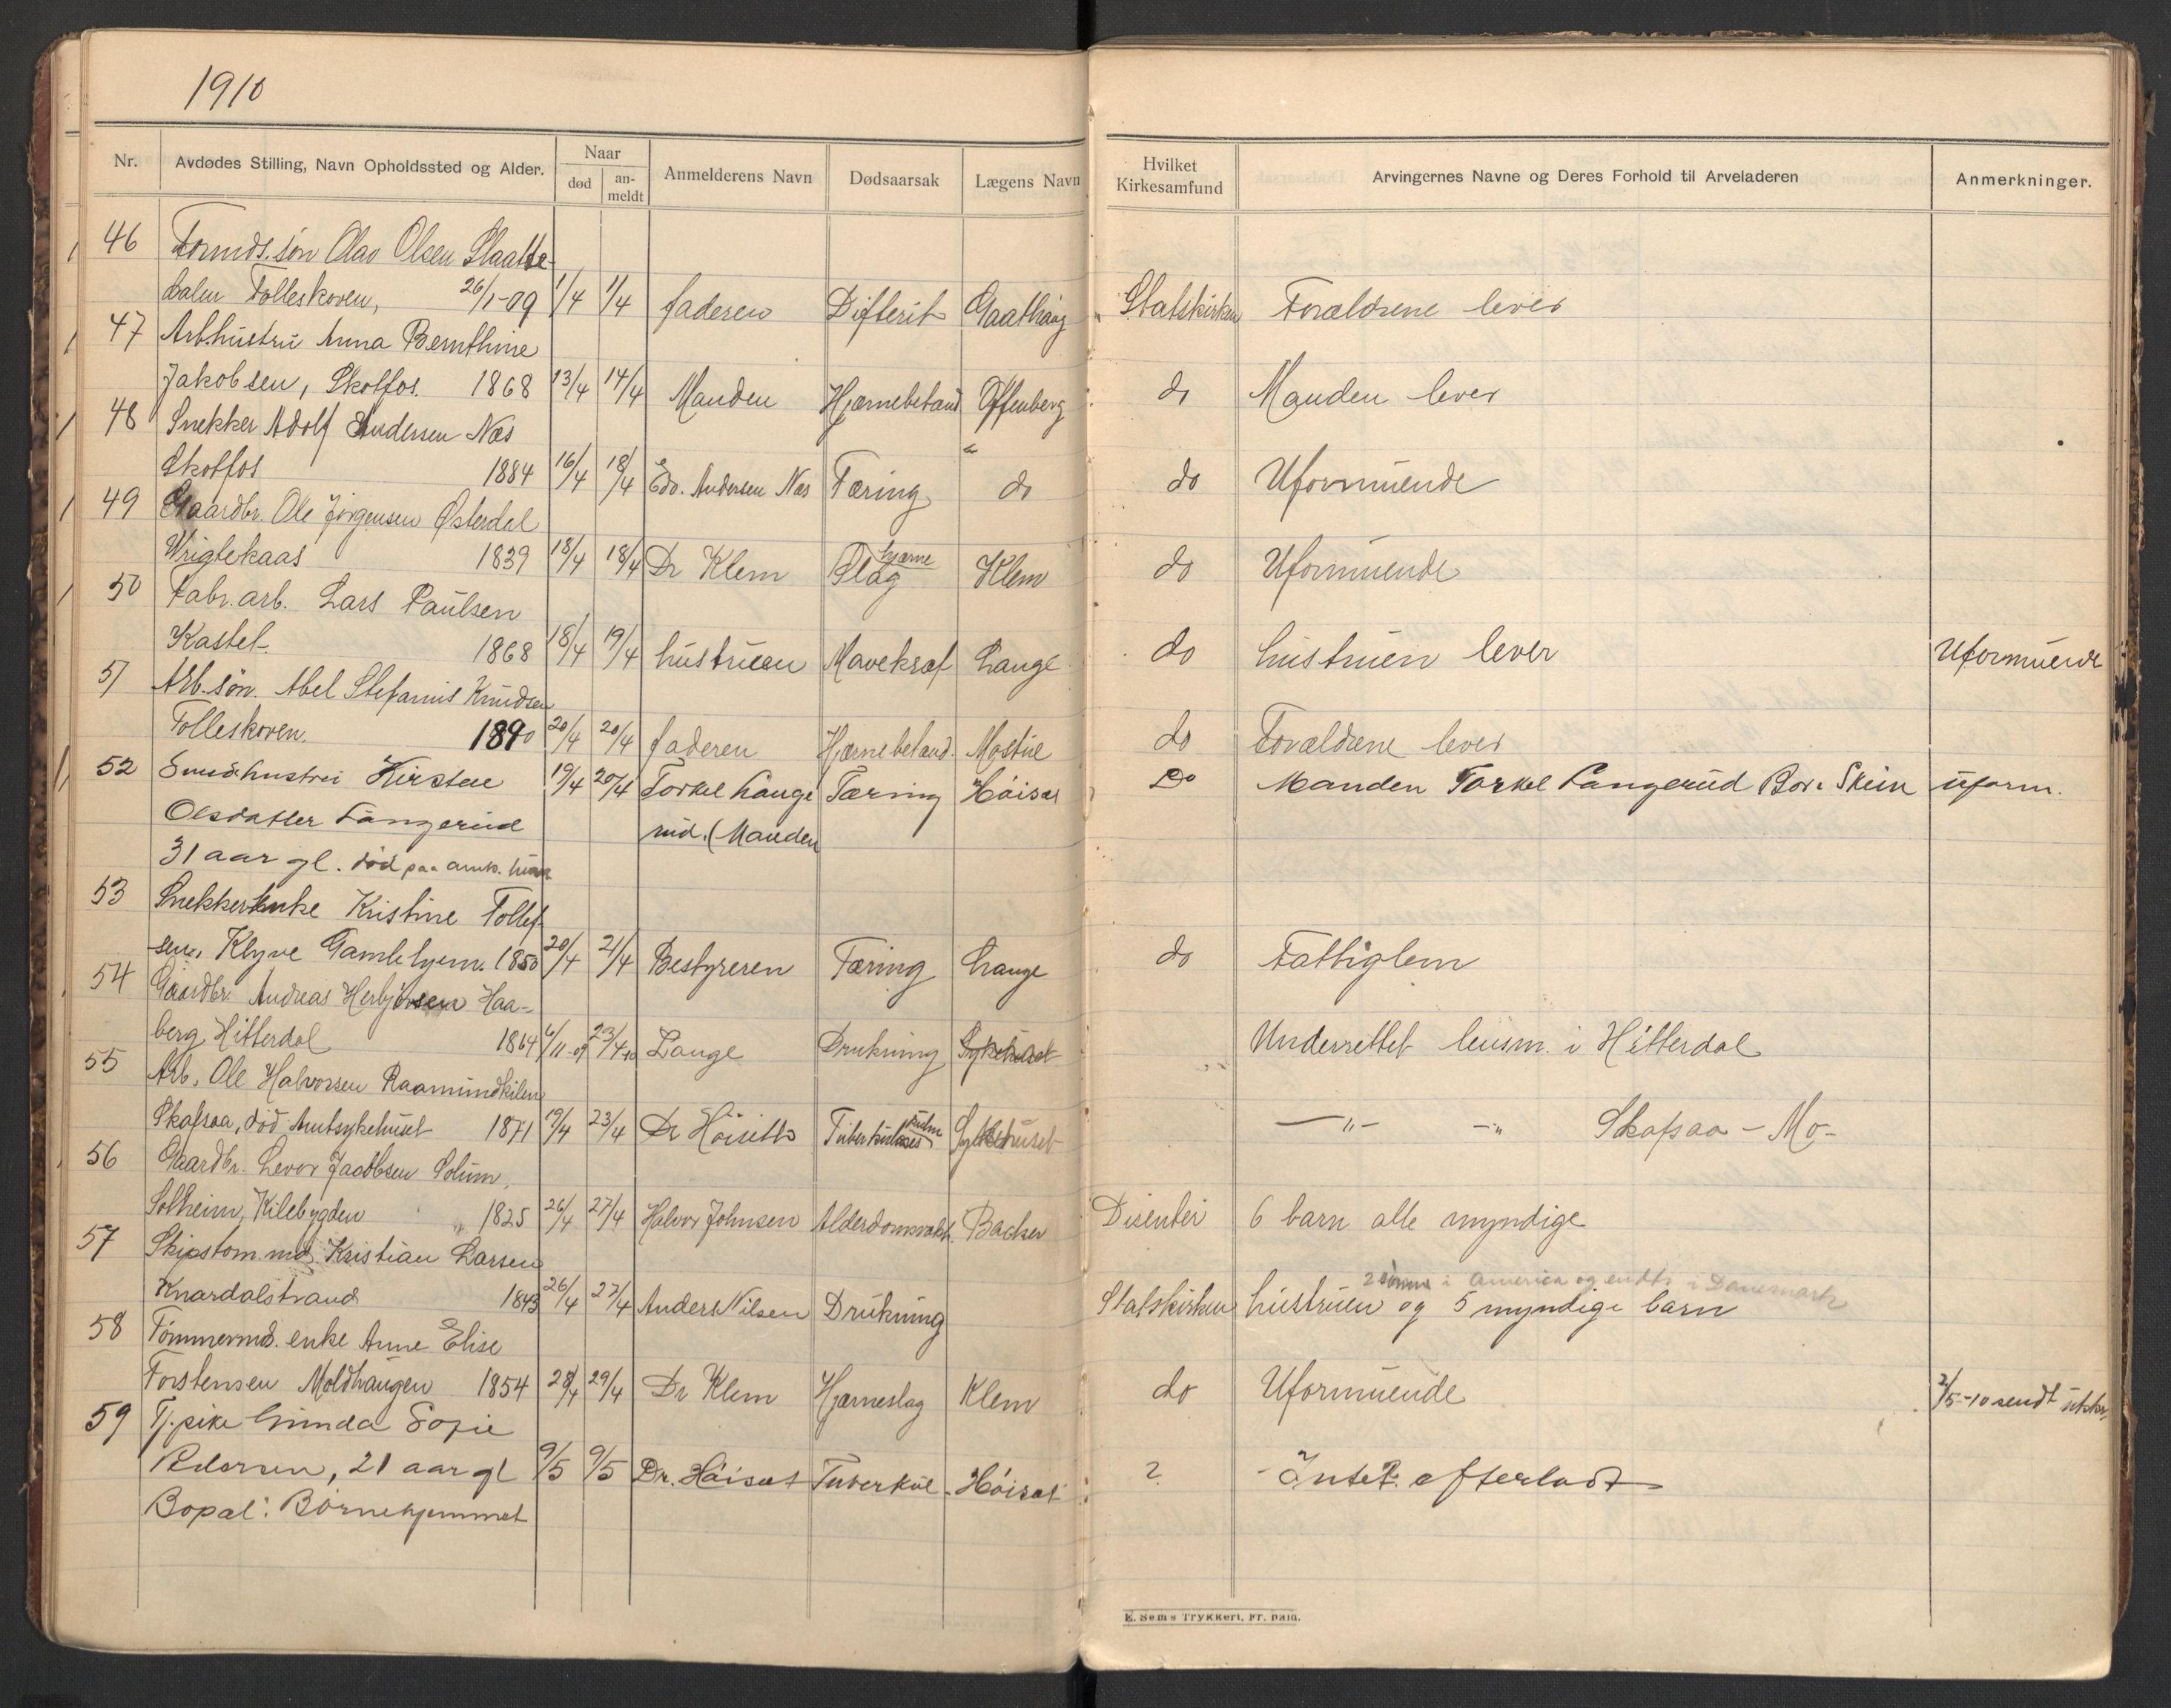 1910
Nr. Avdødes Stilling, Navn Opholdssted og Alder. Naar død an-meldt Anmelderens Navn Dødsaarsak Lægens Navn Hvilket Kirkesamfund Arvingernes Navne og Deres Forhold til Arveladeren Anmerkninger.
46 Formds. søn Olav Olsen Slaatte-
dalen Folleskoven, 26/1-09 1/4 1/4 faderen Difterit Gaathaug Statskirken Forældrene lever
47 Arb.hustru Anna Bernthine
Jakobsen, Skotfos. 1868 13/4 14/4 Manden Hjærnebetænd Offenberg do Manden lever
48 Snekker Adolf Andersen Næs
Skotfos 1884 16/4 18/4 Edv. Andersen Næs Tæring do do Uformuende
49 Gaardbr. Ole Jörgensen Østerdal
Wriglekaas 1839 18/4 18/4 Dr Klem hjærne Slag Klem do Uformuende
50 Fabr. arb. Lars Paulsen
Kastet. 1868 18/4 19/4 hustruen Mavekræf Lange do hustruen lever Uformuende
51 Arb. søn. Abel Stefanus Knudsen
Folleskoven. 1890 20/4 20/4 faderen Hjærnebetænd. Mostue do Forældrene lever
52 Smedhustru Kirsten 19/4 20/4 Torkel Lange Tæring Höisæt Do Manden Torkel Langerud Bor i Skien uform.
Olsdatter Langerud rud. (Manden
31 aar gl. död paa amts.
53 Snekkerenke Kristine Tollef-
sen, Klyve Gamlehjem. 1850 20/4 21/4 Bestyreren Tæring Lange do Fattiglem
54 Gaardbr. Andreas Herbjörnsen Haa-
berg Hitterdal 1864 6/11-09 23/4-10 Lange Drukning Sykehuset Underrettet lensm. i Hitterdal
55 Arb. Ole Halvorsen Raamundkilen
Skafsaa, död Amtsykehuset 1871 19/4 23/4 Dr Höiseth Tuberkuloses Sykehuset —"— —"— Skafsaa - Mo-
56 Gaardbr. Levor Jacobsen Solum.
Solheim, Kilebygden 1825 26/4 27/4 Halvor Johnsen Alderdomsvakh. Backer Disenter 6 barn alle myndige
57 Skipstom.md. Kristian Larsen 2 sönner i America og endts i Danemark
Knardalstrand 1843 26/4 27/4 Anders Nilsen Drukning Statskirken hustruen og 5 myndige barn
58 Tömmermd. enke Anne Elise
Torstensen Moldhaugen 1854 28/4 29/4 Dr Klem Hjærneslag Klem do Uformuende 2/5-10 sendt
59 Tj.pike Gunda Sofie
Pedersen, 21 aar gl 9/5 9/5 Dr. Höisæt Tuberkul. Höisæt ? Intet efterladt
Bopæl: Börnehjemmet
E. Sem's Trykkeri, Fr. hald.